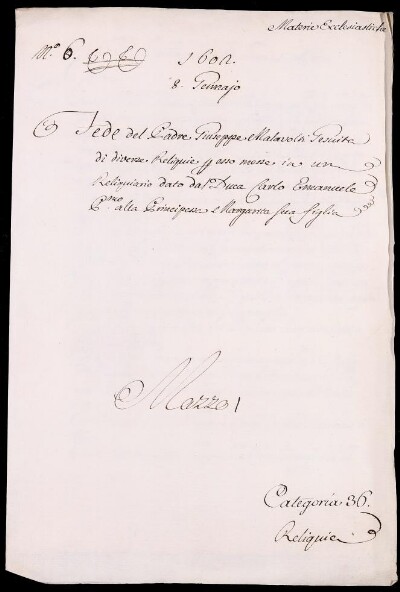 Materie Ecclesiastiche
N.º 6.
1602.
8. Gennajo
Fede del Padre Giuseppe Malavolti Gesuita
di diverse Reliquie p esso messe in un
Reliquiario dato dal Duca Carlo Emanuele
P.mo alla Principessa Margarita sua figlia
Mazzo 1
Categoria 36.
Reliquie